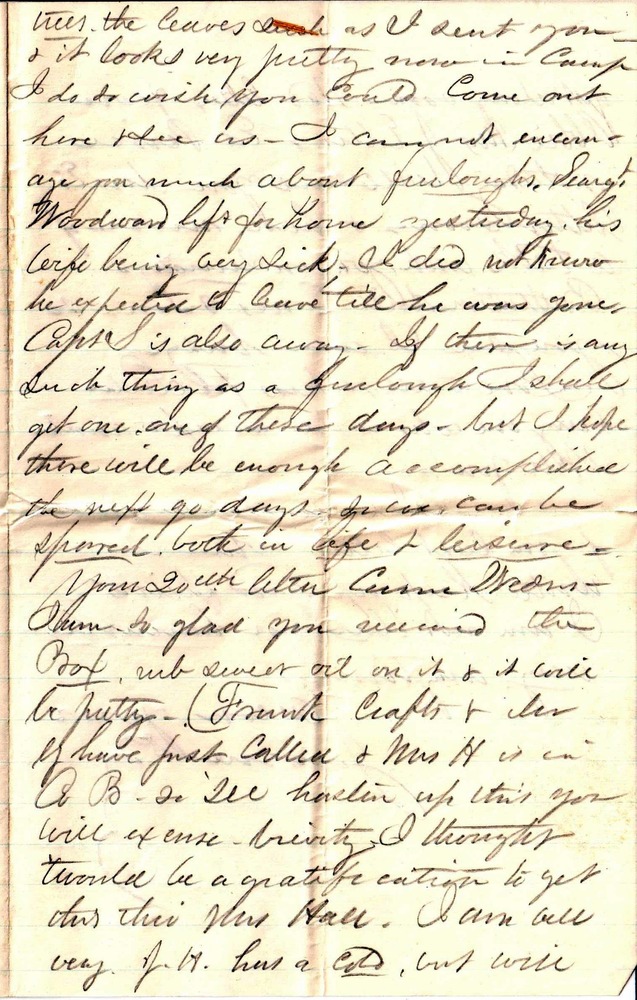 trees. the leaves such as I sent you
& it looks very pretty now in Camp
I do so wish you Could Come out
here & see us - I can not encour-
age you much about furloughs. Sergt
Woodward left for home yesterday, his
wife being very sick, I did not know
he expected to leave till he was gone,
Capt S is also away - If there is any
such thing as a furlough I shall
get one. one of these days - but I hope
there will be enough accomplished
the next 90 days - so we can be
spared. both in life & leisure -
Your 20th letter Came Wednes-
I am so glad you received the
Box, rub sweet oil on it & it will
be pretty - (Frank Crafts &
have just Called & Mrs H is in
A B - so I'll hasten up this you
will excuse - brevity. I thought
twould be a gratification to get
this Mrs Hall. I am well
very. J. H. has a cold, but will